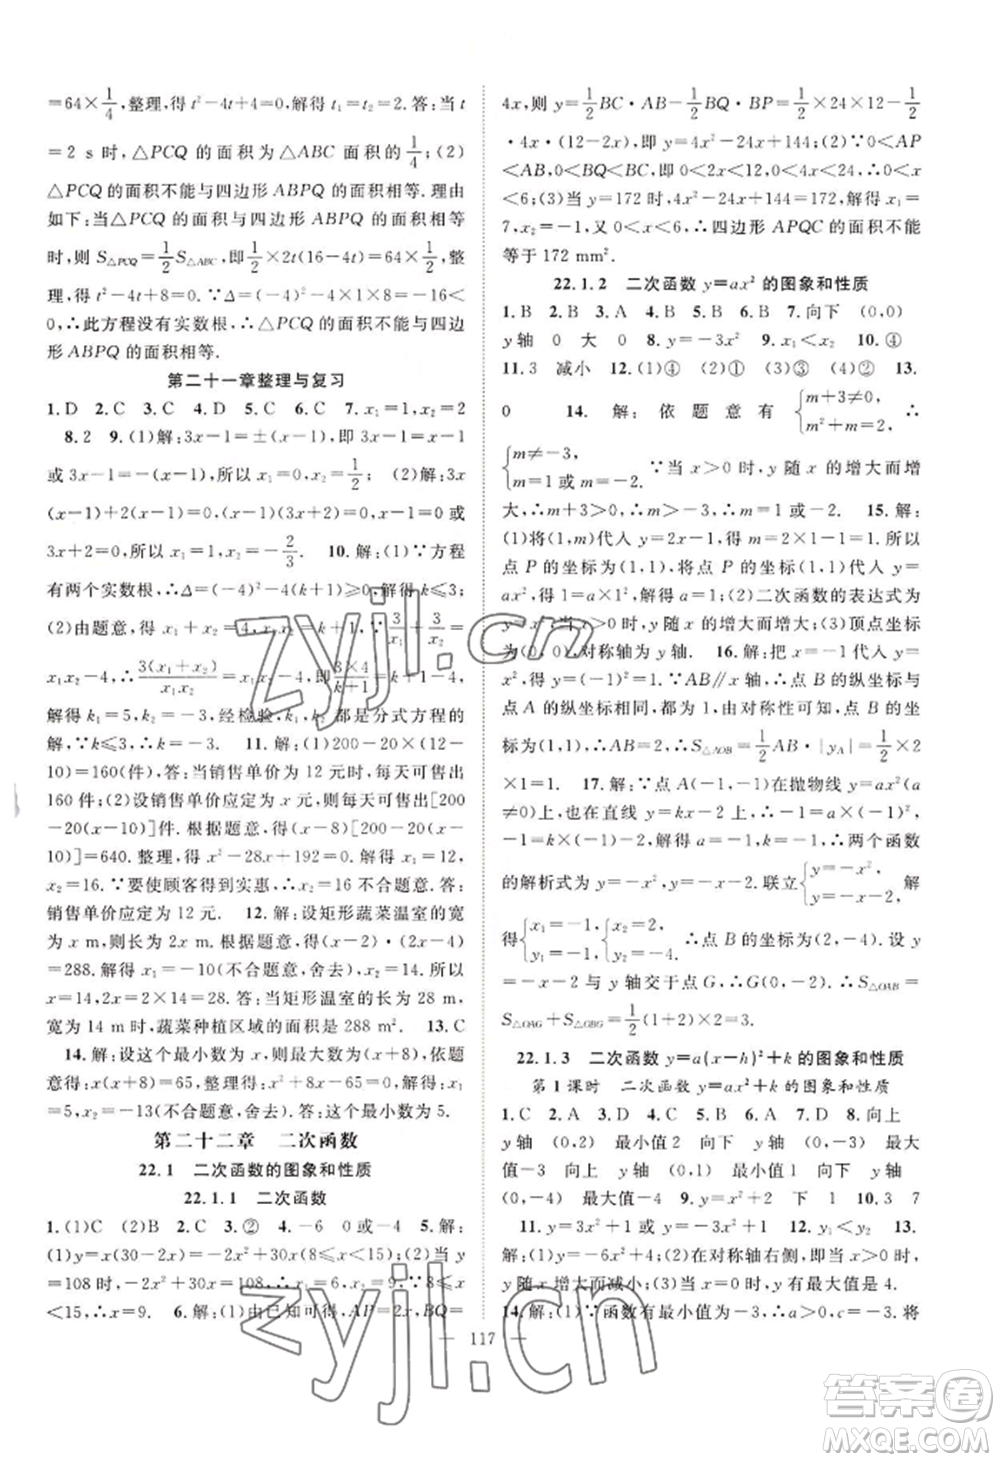 =64×1/4,整理,得 t²-4t+4=0.解得 t₁=t₂=2.答:当 t
=2 s时,△PCQ 的面积为△ABC 面积的1/4;(2)
△PCQ 的面积不能与四边形 ABPQ 的面积相等.理由
如下:当△PCQ 的面积与四边形 ABPQ 的面积相等
时,则 S△PCQ=1/2S△ABC,即1/2×2t(16-4t)=64×1/2,整
理,得 t²-4t+8=0.∵Δ=(-4)²-4×1×8=-16<
0,∴此方程没有实数根,∴△PCQ 的面积不能与四边
形 ABPQ 的面积相等.
第二十一章整理与复习
1.D 2.C 3.C 4.D 5.C 6.C 7.x₁=1,x₂=2
8.2 9.(1)解:3x-1=±(x-1),即 3x-1=x-1
或 3x-1=-(x-1),所以 x₁=0,x₂=1/2; (2)解:3x
(x-1)+2(x-1)=0,(x-1)(3x+2)=0,x-1=0 或
3x+2=0,所以 x₁=1,x₂=-2/3. 10.解:(1)∵方程
有两个实数根,∴Δ=(-4)²-4(k+1)≥0.解得 k≤3;
(2)由题意,得 x₁+x₂=4,x₁x₂=k+1.∵3/x₁+3/x₂=
x₁x₂-4,∴3(x₁+x₂)/x₁x₂=x₁x₂-4,∴3×4/k+1=k+1-4,
解得 k₁=5,k₂=-3,经检验,k₁,k₂ 都是分式方程的
解.∵k≤3,∴k=-3. 11.解:(1)200-20×(12-
10)=160(件).答:当销售单价为 12 元时,每天可售出
160 件;(2)设销售单价应定为 x 元,则每天可售出[200
-20(x-10)]件.根据题意,得(x-8)[200-20(x-
10)]=640.整理,得 x²-28x+192=0.解得 x₁=12,
x₂=16.∵要使顾客得到实惠,∴x₂=16 不合题意.答:
销售单价应定为 12 元. 12.解:设矩形蔬菜温室的宽
为 x m,则长为 2x m.根据题意,得(x-2)·(2x-4)=
288.解得 x₁=-10(不合题意,舍去),x₂=14.所以
2x=2×14=28.答:当矩形温室的长为 28 m,
宽为 14 m 时,蔬菜种植区域的面积是 288 m². 13.C
14.解:设这个最小数为 x,则最大数为(x+8),依题意
得:x(x+8)=65,整理得:x²+8x-65=0,解得:x₁=5,
x₂=-13(不合题意,舍去).答:这个最小数为 5.
第二十二章 二次函数
22.1 二次函数的图象和性质
22.1.1 二次函数
1.(1)C (2)B 2.B 3.② 4.-6 0或-4 5.解:
(1)y=x(30-2x)=-2x²+30x(8≤x<15);(2)当 y
=108 时,-2x²+30x=108,解得 x₁=6,x₂=9.∵8≤x
<15,∴x=9. 6.解:(1)由已知可得,AP=2x,BQ=
4x,则 y=1/2BC·AB-1/2BQ·BP=1/2×24×12-1/2
·4x·(12-2x),即 y=4x²-24x+144;(2)∵0<AP
<AB,0<BQ<BC,即 0<2x<12,0<4x<24,∴0<x
<6;(3)当 y=172 时,4x²-24x+144=172,解得 x₁=
7,x₂=-1,又 0<x<6,∴四边形 APQC 的面积不能
等于 172 mm².
22.1.2 二次函数 y=ax² 的图象和性质
1.B 2.B 3.A 4.B 5.B 6.B 7.向下 (0,0)
y 轴 0 大 0 8.y=-3x² 9.> < 10.④
11.3 减小 12.(1)④ (2)② (3)① (4)③ 13.
0 14.解:依题意有{m+3≠0, m²+m=2, ∴
{m≠-3, m=1或m=-2. ∵当 x>0时,y 随 x 的增大而增
大,∴m+3>0,∴m=1 或 m=-2. 15.解:
(1)将(1,m)代入 y=2x-1,得 m=2×1-1=1.所以
点 P 的坐标为(1,1).将点 P 的坐标(1,1)代入 y=
ax²,得 1=a×1²,解得 a=1;(2)二次函数的表达式为
y=x²,当 x>0 时,y 随 x 的增大而增大;(3)顶点坐标
为(0,0),对称轴为 y 轴. 16.解:把 x=-1 代入 y=
x²,得 y=1,∴A(-1,1).∵AB∥x 轴,∴B 的纵坐标与
点 A 的纵坐标相同,都为 1,由对称性可知,点 B 的坐
标为(1,1),∴AB=2,∴S△AOB=1/2AB·|yA|=1/2×2
×1=1. 17.解:∵点 A(-1,-1)在抛物线 y=ax²(a
≠0)上,也在直线 y=kx-2 上,∴-1=a×(-1)²,
-1=k×(-1)-2,解得 a=-1,k=-1,∴两个函数
的解析式为 y=-x²,y=-x-2.联立{y=-x², y=-x-2, 解
得{x₁=-1, y₁=-1, {x₂=2, y₂=-4, ∴点 B 的坐标为(2,-4).设 y
=-x-2 与 y 轴交于点 G,∴G(0,-2),∴S△OAB=
S△OAG+S△OBG=1/2(1+2)×2=3.
22.1.3 二次函数 y=a(x-h)²+k 的图象和性质
第 1 课时 二次函数 y=ax²+k 的图象和性质
1.C 2.B 3.D 4.B 5.B 6.A 7.D 8.向上
y 轴 (0,2) 最小值 2 向下 y 轴 (0,-3) 最大
值-3 向上 y 轴 (0,1) 最小值 1 向下 y 轴
(0,-4) 最大值-4 9.y=-x²+2 下 1 10.3 7
11.y=3x²+1 或 y=-3x²+1 12.y₁<y₂ 13.
解:(1)y=-3x²+4;(2)在对称轴右侧,即当 x>0 时,
y 随 x 增大而减小;(3)当 x=0 时,y 有最大值是 4.
14.解:(1)∵函数有最小值为-3,∴a>0,c=-3,将
117
zyjl.cn
zyjl.cn
答案圈
MXQE.COM